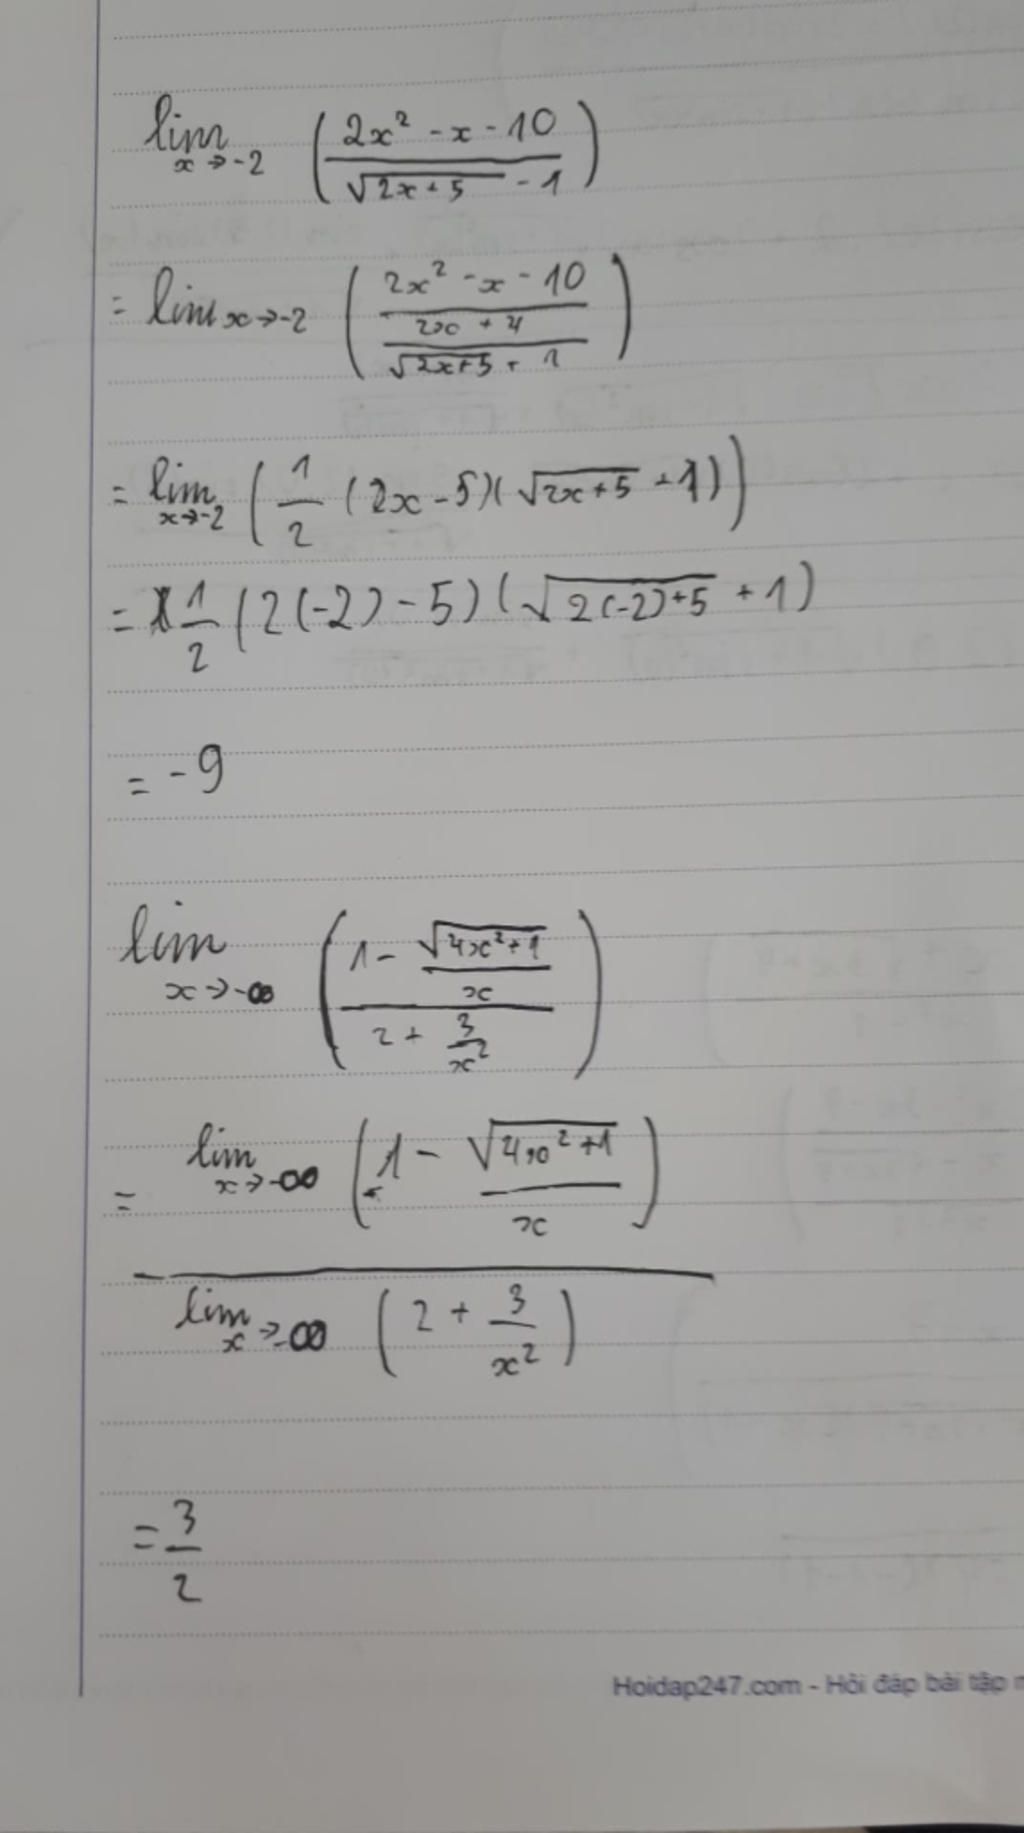 lim x→-2 ( (2x² - x - 10) / (√(2x+5) - 1) )
= lim x→-2 ( (2x² - x - 10) / ( (2x + 4) / (√(2x+5) + 1) ) )
= lim x→-2 ( 1/2 (2x-5)(√(2x+5) + 1) )
= 1/2 (2(-2) - 5) (√(2(-2)+5) + 1)
= -9
lim x→-∞ ( (1 - √(4x²+1) / x) / (2 + 3/x²) )
= lim x→-∞ ( 1 - √(4x²+1) / x ) / lim x→-∞ ( 2 + 3/x² )
= 3/2
Hoidap247.com - Hỏi đáp bài tập